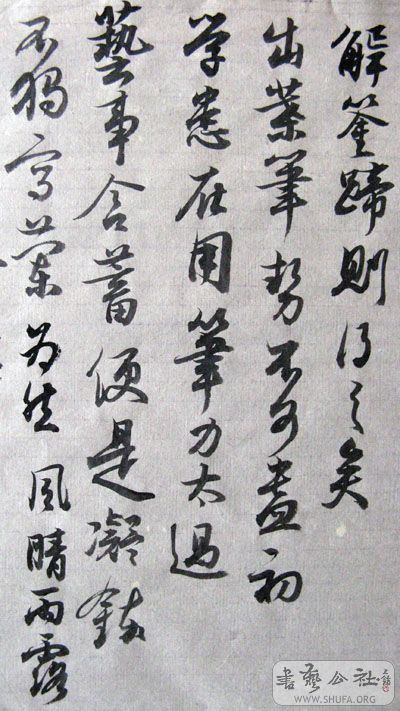 解筌蹄則得之矣
出葉筆勢不可盡初
学患在用筆力太過
藝事含蓄便是凝鍊
不獨寫蘭為然風晴雨露
書藝公社
WWW.SHUFA.ORG